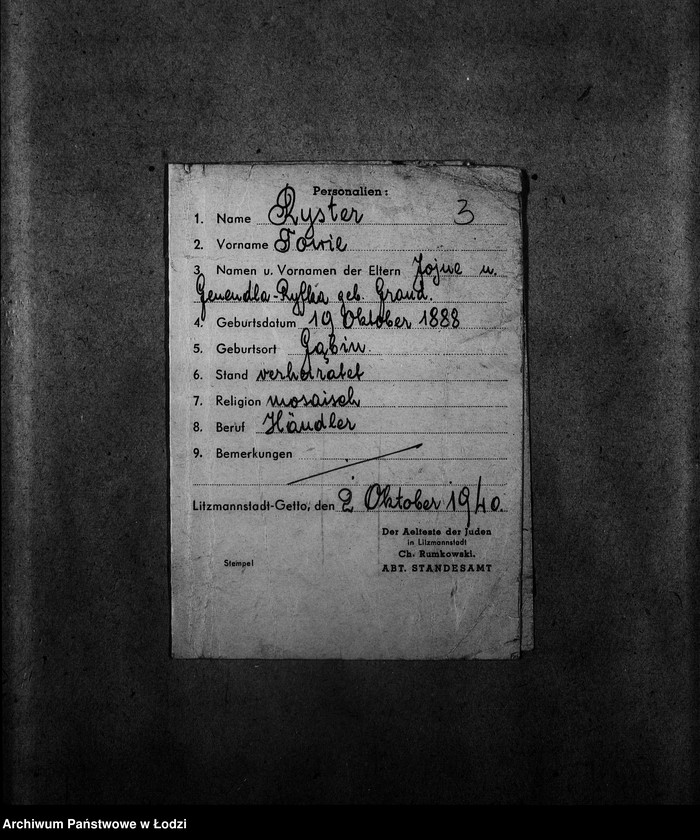 Personalien:
1. Name Ryster 3
2. Vorname Towie
3. Namen u. Vornamen der Eltern Jojne u.
Genendla-Ryfka geb. Graud.
4. Geburtsdatum 19 Oktober 1888
5. Geburtsort Gąbin.
6. Stand verheiratet
7. Religion mosaisch
8. Beruf Händler
9. Bemerkungen
Litzmannstadt-Getto, den 2 Oktober 1940.
Der Aelteste der Juden
in Litzmannstadt
Ch. Rumkowski.
Stempel
ABT. STANDESAMT
Archiwum Państwowe w Łodzi